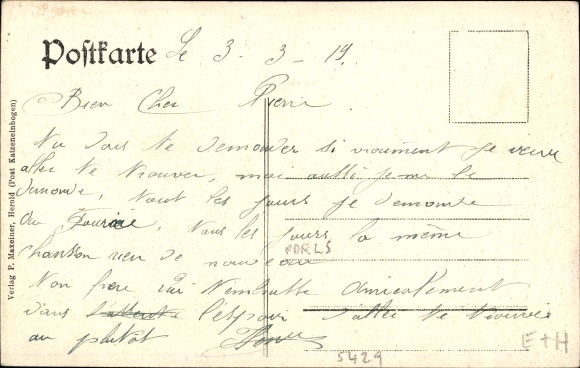 Postkarte Le 3-3-19.
Bien Cher Pierre
Tu dois te demander si vraiment je veux
aller te trouver, moi aussi je me le
demande, tout les jours je demande
du , tous les jours la même
chanson rien de nouveau
Ton frère qui t'embrasse amicalement
dans l'espoir d'aller te trouver
au plutôt
PORLS
5429
E+H
Verlag P. Maxeiner, Herold (Post Katzenelnbogen)